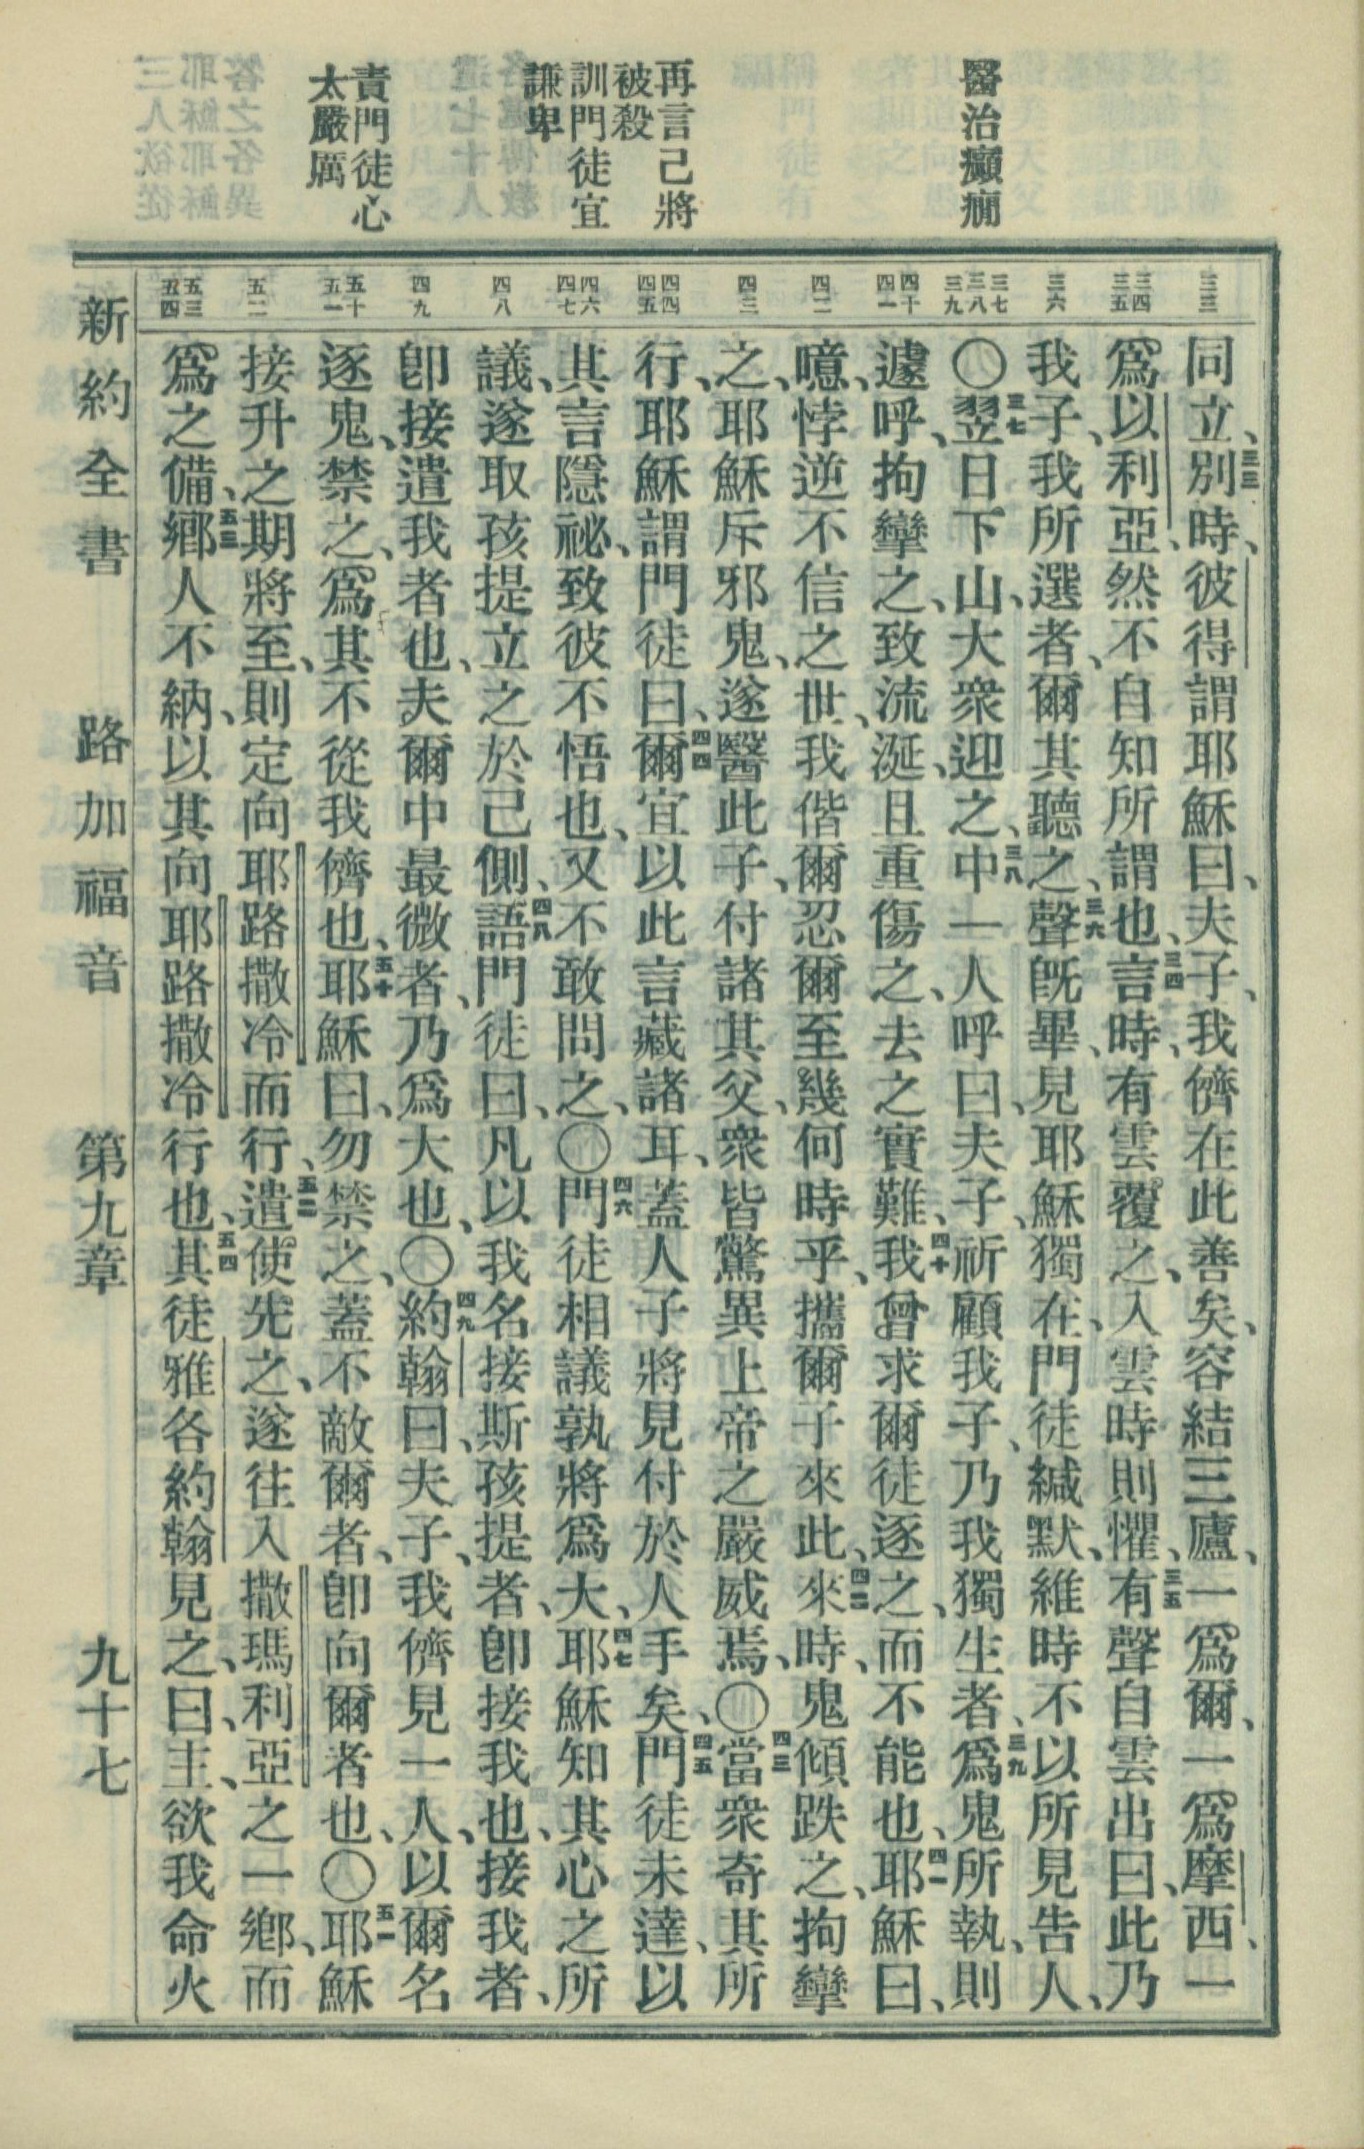 醫治癲癇
再言己將
被殺
訓門徒宜
謙卑
責門徒心
太嚴厲
三三
三四
三五
三六
三七
三八
三九
四十
四一
四二
四三
四四
四五
四六
四七
四八
四九
五十
五一
五二
五三
五四
同立、三三別時、彼得謂耶穌曰、夫子、我儕在此善矣、容結三廬、一爲爾、一爲摩西、一
爲以利亞、然不自知所謂也、三四言時、有雲覆之、入雲時則懼、三五有聲自雲出曰、此乃
我子、我所選者、爾其聽之、三六聲旣畢、見耶穌獨在、門徒緘默、維時不以所見告人、
〇三七翌日下山、大衆迎之、三八中一人呼曰、夫子、祈顧我子、乃我獨生者、三九爲鬼所執、則
遽呼、拘攣之、致流涎、且重傷之、去之實難、四十我曾求爾徒逐之、而不能也、四一耶穌曰、
噫、悖逆不信之世、我偕爾忍爾至幾何時乎、攜爾子來此、四二來時、鬼傾跌之、拘攣
之、耶穌斥邪鬼、遂醫此子、付諸其父、衆皆驚異上帝之嚴威焉、〇四三當衆奇其所
行、耶穌謂門徒曰、四四爾宜以此言藏諸耳、蓋人子將見付於人手矣、四五門徒未達、以
其言隱祕、致彼不悟也、又不敢問之、〇四六門徒相議孰將爲大、四七耶穌知其心之所
議、遂取孩提立之於己側、四八語門徒曰、凡以我名接斯孩提者、卽接我也、接我者、
卽接遣我者也、夫爾中最微者、乃爲大也、〇四九約翰曰、夫子、我儕見一人、以爾名
逐鬼、禁之、爲其不從我儕也、五十耶穌曰、勿禁之、蓋不敵爾者、卽向爾者也、〇五一耶穌
接升之期將至、則定向耶路撒冷而行、五二遣使先之、遂往入撒瑪利亞之一鄕、而
爲之備、五三鄕人不納、以其向耶路撒冷行也、五四其徒雅各約翰見之曰、主、欲我命火
新約全書 路加福音 第九章 九十七